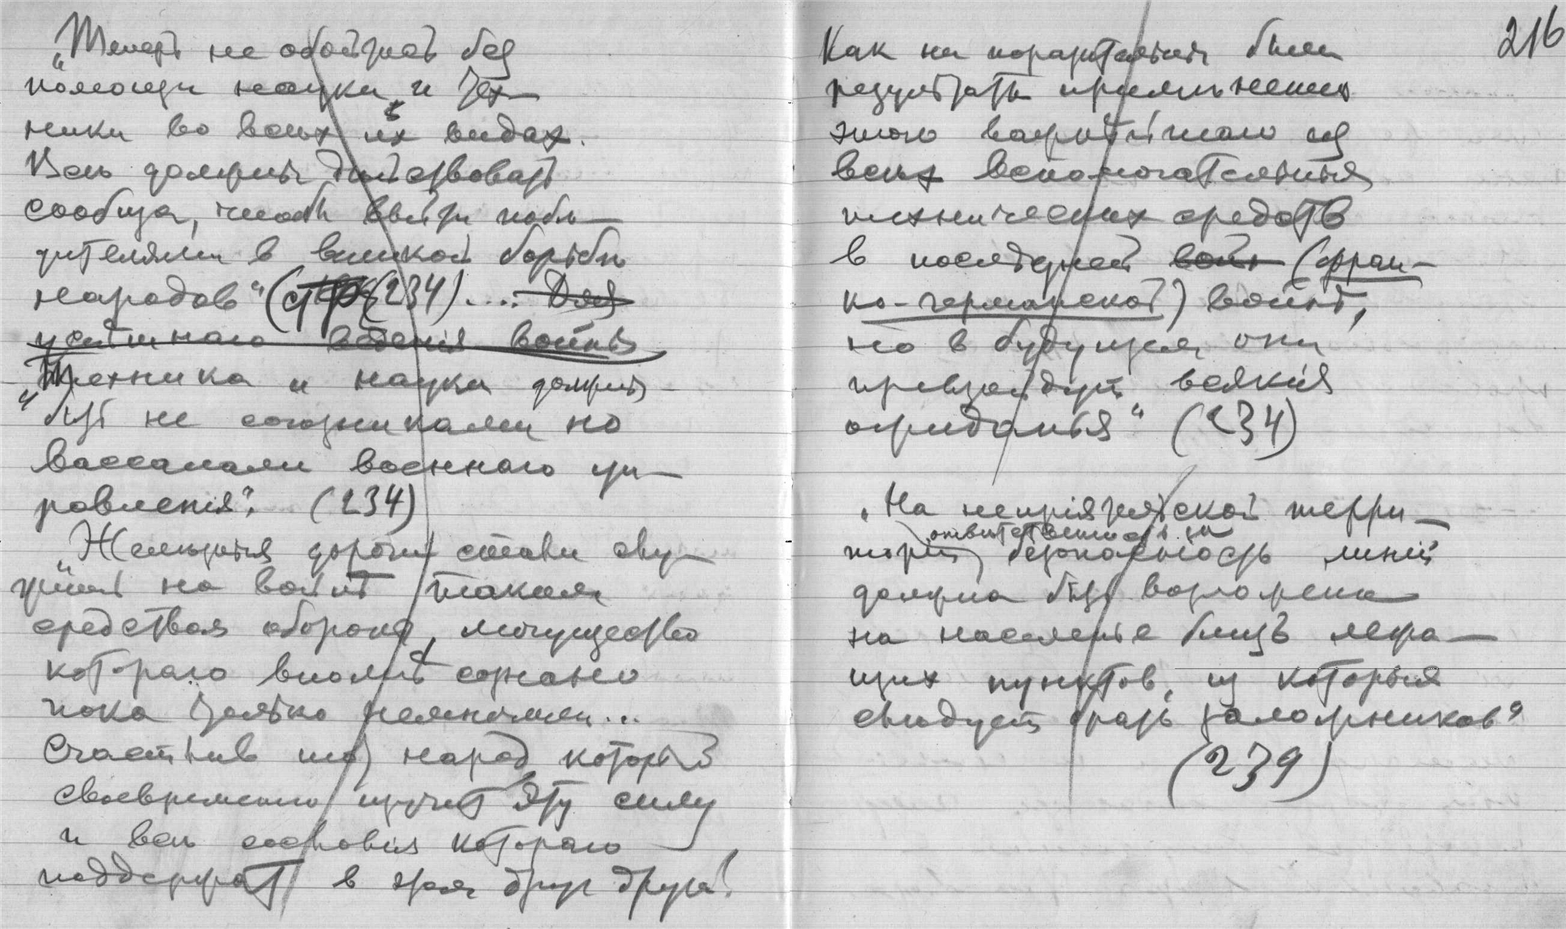 „Теперь не обойтись без
помощи науки и тех-
ники во всѣх их видах.
Всѣ должны дѣйствовать
сообща, чтобы выйти побѣ-
дителями в великой борьбѣ
народов“ (стр. 234).... Для
успѣшнаго веденія войны
„Техника и наука должны
быть не союзниками но
вассалами военнаго уп-
равленія“. (234)
„Желѣзныя дороги стали
на войнѣ таким
средством обороны, могущество
котораго вполнѣ сознано
пока только немногими...
Счастлив тот народ который
своевременно изучит эту силу
и всѣ сословія котораго
поддержат в этом друг друга“.
216
Как ни поразительны были
результаты примѣненія
этого важнѣйшаго из
всѣх вспомогательных
технических средств
в послѣдней войнѣ (фран-
ко-германской) войнѣ,
но в будущем они
превзойдут всякія
ожиданія“ (234)
„На непріятельской терри-
торіи отвѣтственность за безопасность линій
должна быть возложена
на населеніе близь лежа-
щих пунктов, из которых
слѣдует брать заложников“
(239)